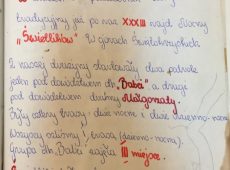 tradycyjny już po raz XXXIII rajd Nocny
„Świetlików" w Górach Świętokrzyskich.
Z naszej drużyny startowały dwa patrole
jeden pod dowództwem dh. „Babci" a drugi
pod dowództwem druhny Małgorzaty.
Były cztery trasy - dwie nocne i dwie dzienno-nocne.
Wszyscy szliśmy I trasą (dzienno-nocną).
Grupa dh. Babci zajęła III miejsce.